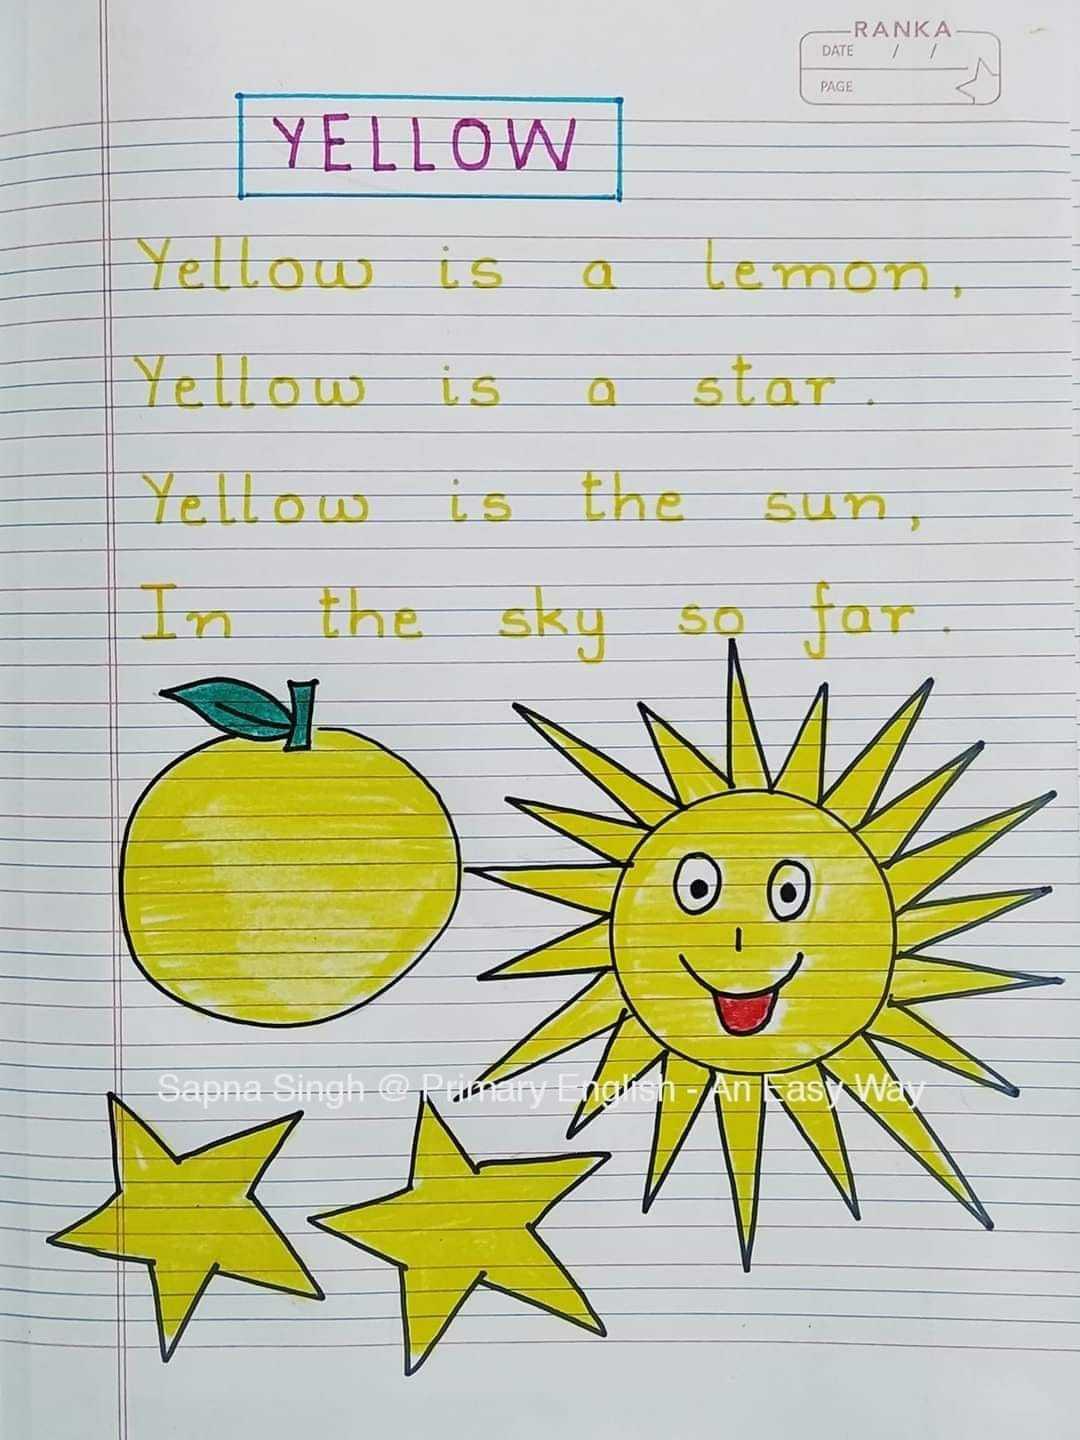 RANKA
DATE / /
PAGE
YELLOW
Yellow is a lemon,
Yellow is a star.
Yellow is the sun,
In the sky so far.
Sapna Singh @ Primary English - An Easy Way